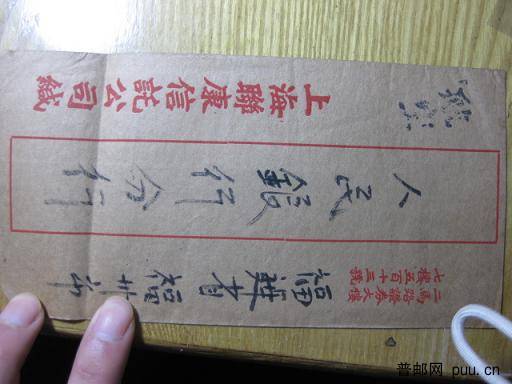 福建省福州市
二馬路證券大樓
七樓五百十三號
人民銀行分行
上海聯康信託公司緘
普邮网 puu.cn